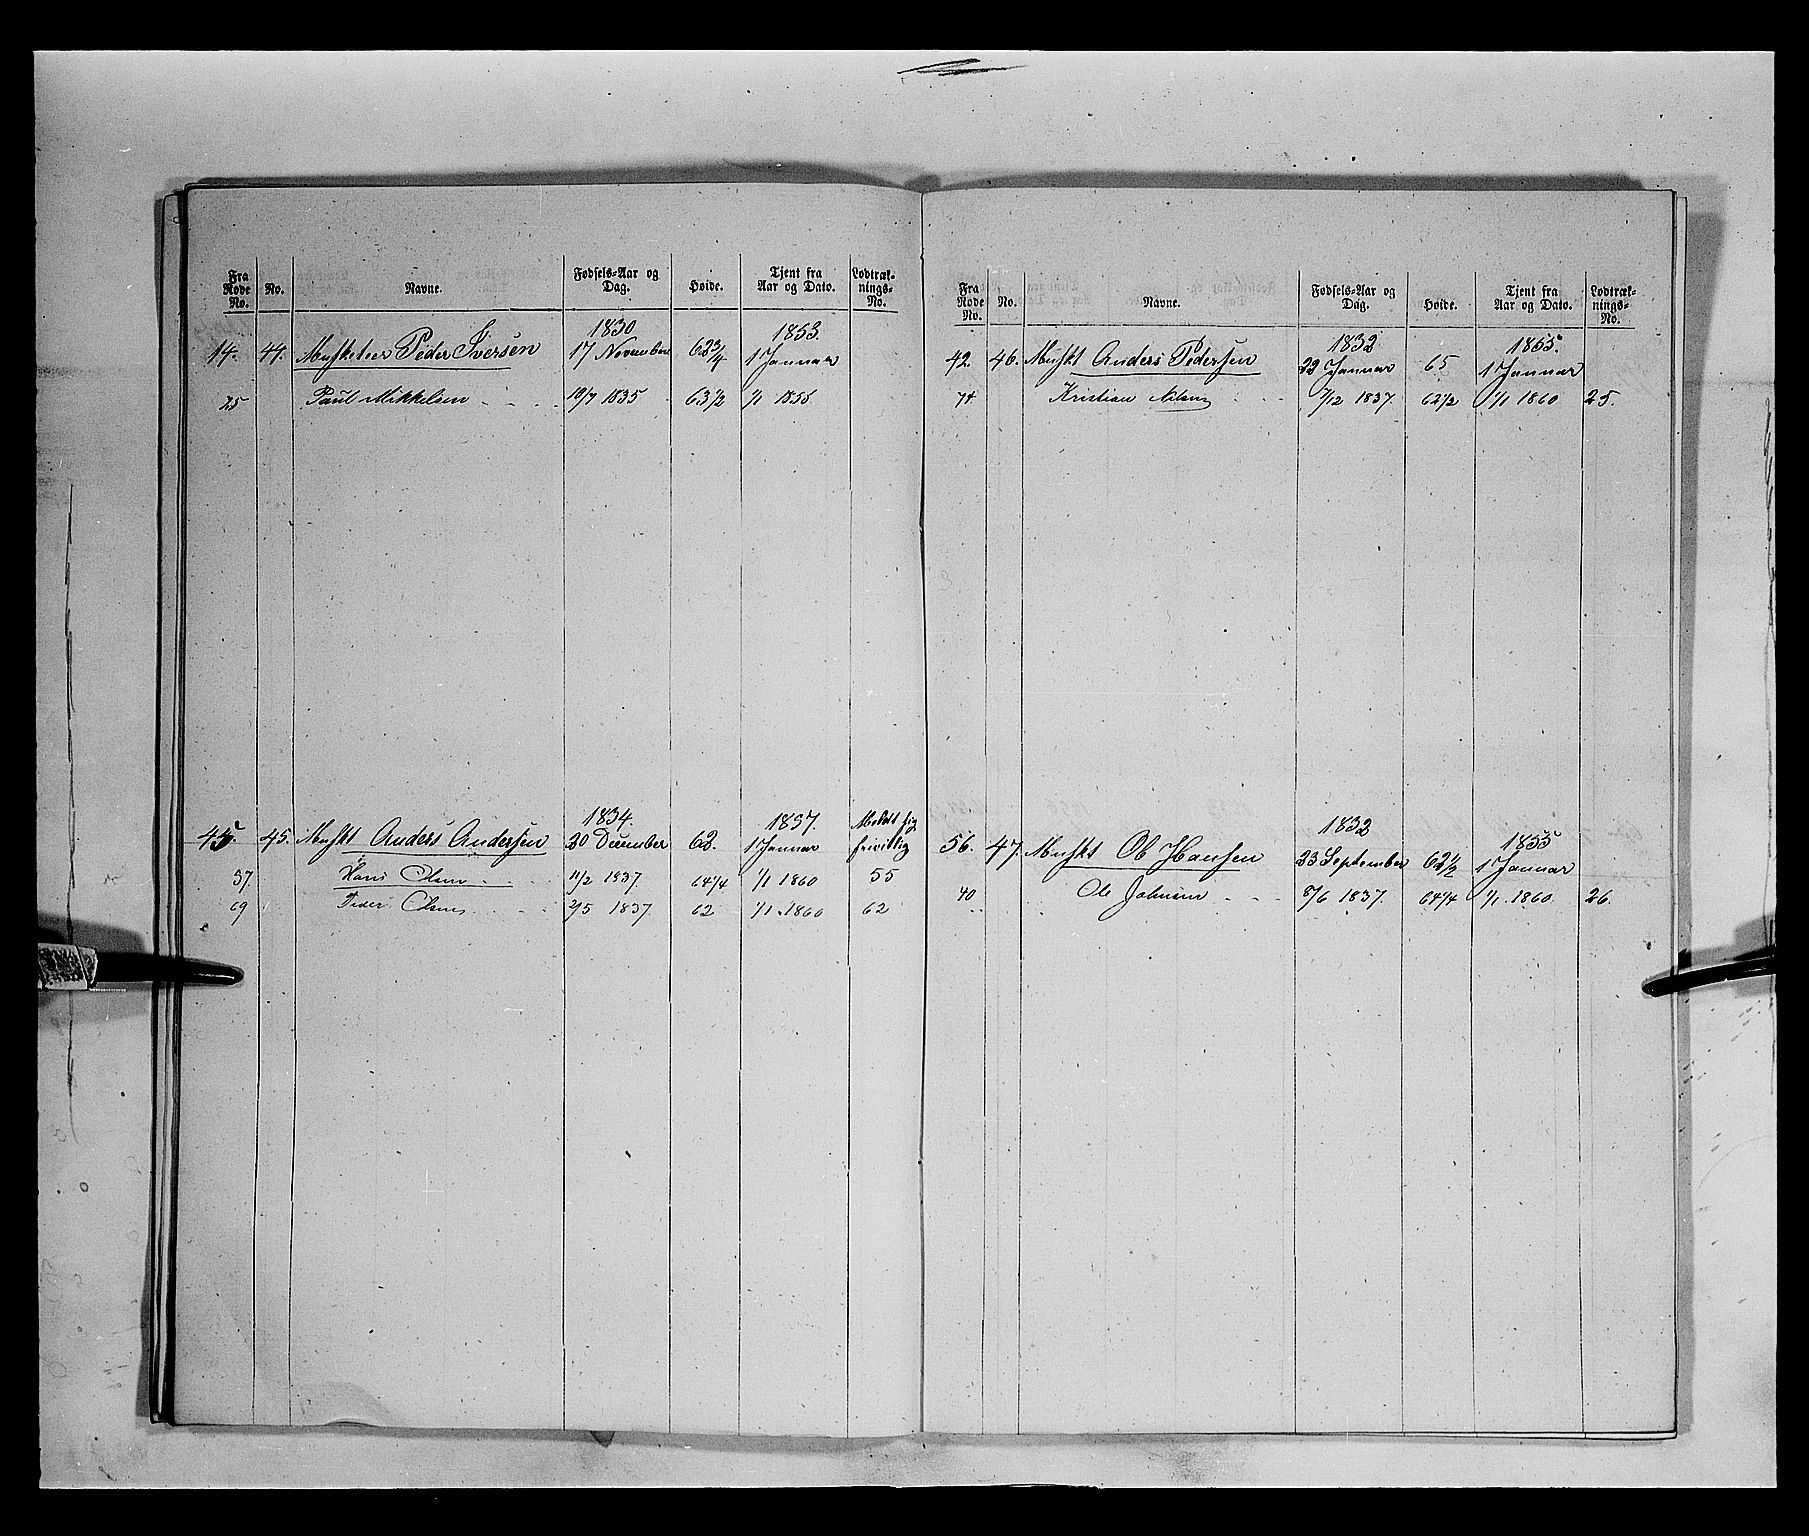 Fra Rode No. No. Navne. Fødsels-Aar og Dag. Høide. Tjent fra Aar og Dato. Lodtræk-nings-No.
1830 1853.
14. 44. Musketeer Peder Iversen 17 November 62 3/4 1 Januar
25 Paul Mikkelsen 10/7 1835 63 1/2 1/1 1855
1834. 1857. Meldt sig
45. Muskt Anders Andersen 20 December 62. 1 Januar frivillig
37. Hans Olsen 11/2 1837. 64 1/4 1/1 1860 55
69 Peder Olsen 2/5 1837. 62 1/1 1860 62
Fra Rode No. No. Navne. Fødsels-Aar og Dag. Høide. Tjent fra Aar og Dato. Lodtræk-nings-No.
1832 1855.
42. 46. Muskt Anders Pedersen 22 Januar 65 1 Januar
74 Kristian Nilsen 7/12 1837. 62 1/2 1/1 1860 25.
1832 1855
56. 47. Muskt Ole Hansen 23 September 62 1/2 1 Januar
40 Ole Johnsen 8/6 1837. 64 1/4 1/1 1860 26.